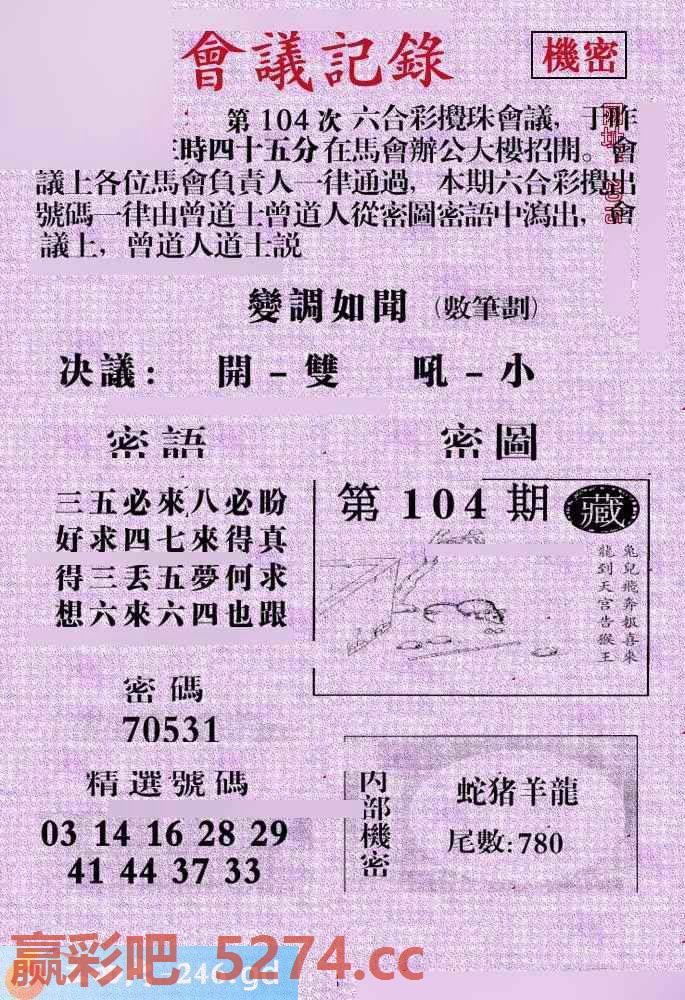 會議記錄
機密
第104次 六合彩攪珠會議，于昨
時四十五分在馬會辦公大樓招開。會
議上各位馬會負責人一律通過，本期六合彩攪出
號碼一律由曾道士曾道人從密圖密語中瀉出，會
議上，曾道人道士説
變調如聞（數筆劃）
决議：開－雙 吼－小
密語
三五必來八必盼
好求四七來得真
得三丢五夢何求
想六來六四也跟
密圖
第104期
藏
兔兒飛奔报喜來
龍到天宮告猴王
密碼
70531
精選號碼
03 14 16 28 29
41 44 37 33
内部機密
蛇猪羊龍
尾數:780
赢彩吧 5274.cc
246.gd